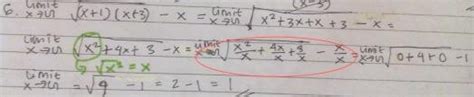 6. limit x→∞ √(x+1)(x+3) - x = limit x→∞ √x²+3x+x+3 - x =
limit x→∞ √x²+4x+3 - x = limit x→∞ √x²/x + 4x/x + 3/x - x/x = limit x→∞ √0+4+0 - 1
↳ √x² = x
limit x→∞ = √4 - 1 = 2-1 = 1